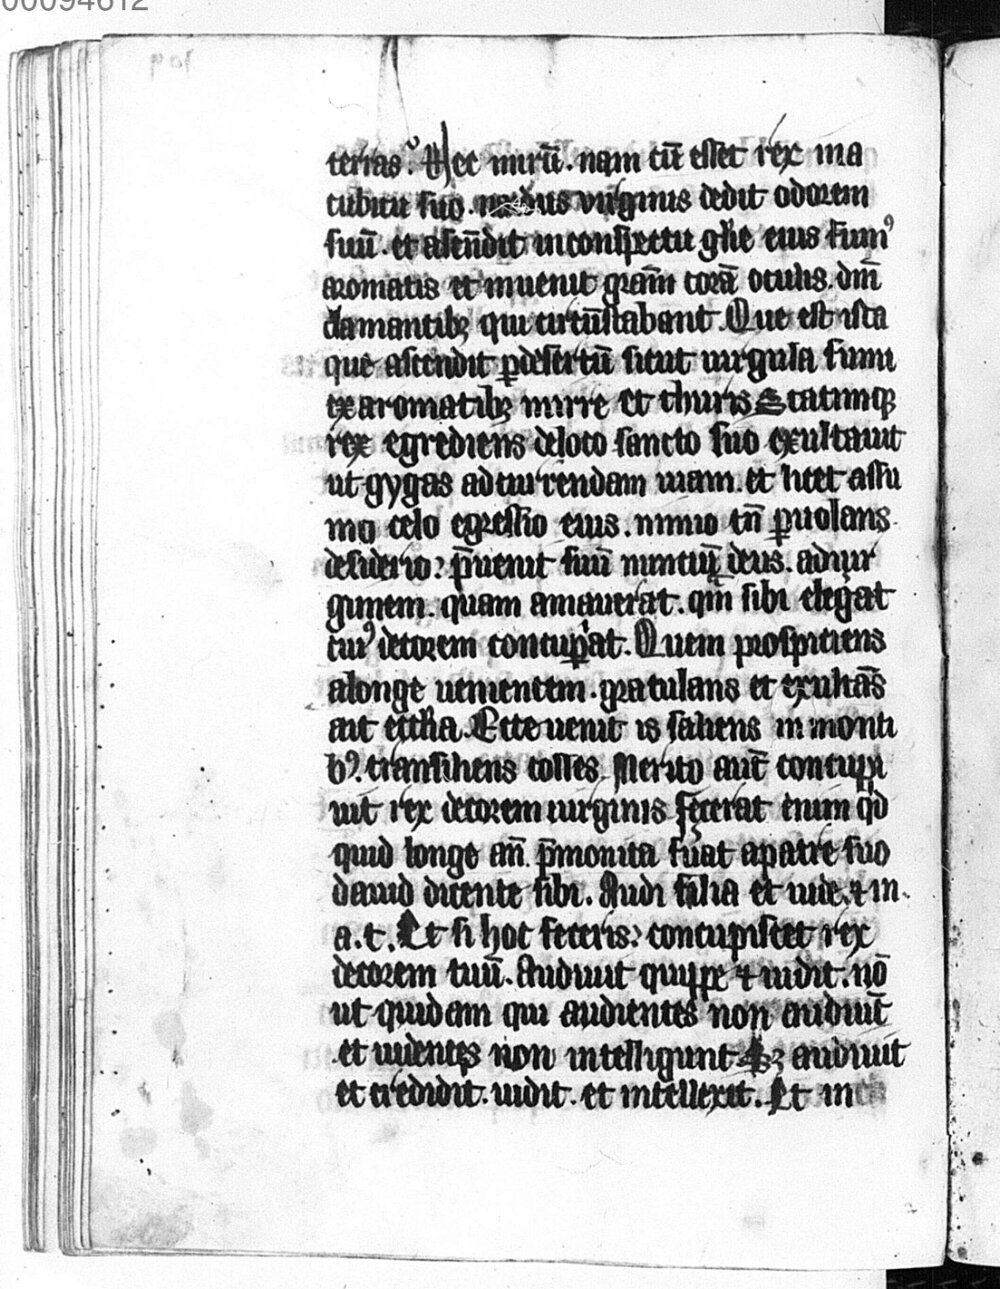 00094612
terras. Nec mirū. nam cū esset rex in a
cubitu suo. nardus virginis dedit odorem
suū. et ascēdit in conspectu glīe eius fumꝰ
aromatis et inuenit grām corā oculis dn̄i
clamantibꝫ qui circūstabant. Que est ista
que ascendit ꝑ desertū sicut uirgula fumi
ex aromatibꝫ mirre et thuris Statimqꝫ
rex egrediens de loco sancto suo exultauit
ut gygas ad currendam uiam. et licet a sū
mo celo egressio eius. nimio tn̄ ꝑuolans
desiderio: p̄uenit suū nunciū deus. ad uir
ginem. quam amauerat. qm̄ sibi elegat
cuiꝰ decorem concupiat. Quem prospiciens
a longe uenientem. gratulans et exultās
ait eccl̄ia. Ecce uenit is saliens in monti
bꝰ. transiliens colles. Merito aut̄ concupi
uit rex decorem uirginis fecerat enim qd
quid longe an̄ p̄monita fūat a patre suo
dauid dicente sibi. Audi filia et uide. ⁊ in.
a. t. Et si hoc feceris: concupiscet rex
decorem tuū. Audiuit quippe ⁊ uidit. nō
ut quidam qui audientes non audiūt
et uidentes non intelligunt Sꝫ audiuit
et credidit. uidit. et intellexit. Et in